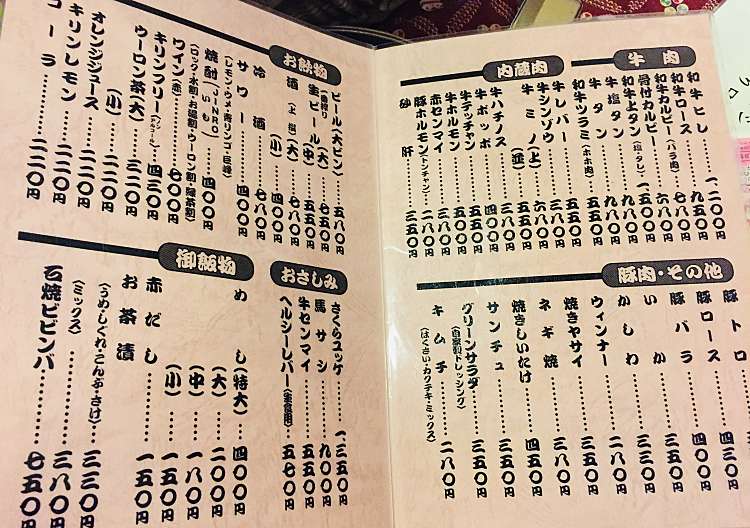 牛肉
和牛ヒレ………一、二〇〇円
和牛ロース………九五〇円
和牛カルビー(バラ肉)…七八〇円
骨付カルビー………六八〇円
和牛上タン(塩・タレ)…一、五〇〇円
牛塩タン………九八〇円
牛タン………
和牛ツラミ(ホホ肉)…五五〇円
内蔵肉
牛レバー………五五〇円
牛シンゾウ………
牛ミノ(上)……六八〇円
(並)……五五〇円
牛ハチノス………
牛ポッポ………四〇〇円
牛テッチャン………五五〇円
牛ホルモン………
赤センマイ………
豚ホルモン(トンチャン)…二八〇円
砂肝………三五〇円
豚肉・その他
豚トロ………四五〇円
豚ロース………四三〇円
豚バラ………四〇〇円
いか………三五〇円
かしわ………三五〇円
ウィンナー………二八〇円
焼きヤサイ………五五〇円
ネギ焼………三五〇円
焼きしいたけ………四五〇円
サンチュ………三五〇円
グリーンサラダ………三五〇円
(自家製ドレッシング)
キムチ………二八〇円
(はくさい・カクテキ・ミックス)
お飲物
ビール(大ビン)……五八〇円
(一番搾り)
生ビール(中)……五五〇円
(大)……七五〇円
酒(上撰)(大)……七八〇円
(小)……四〇〇円
冷酒………七八〇円
サワー………四〇〇円
(レモン・ウメ・青リンゴ・巨峰)
焼酎(いも)(JINRO)……四〇〇円
(ロック・水割・お湯割・ウーロン割・緑茶割)
ワイン(赤)………六〇〇円
キリンフリー(ノンアルコール)…四三〇円
ウーロン茶(大)……三三〇円
(小)……二二〇円
オレンジジュース……二二〇円
キリンレモン………二二〇円
コーラ………二二〇円
おさしみ
さくらユッケ……一、三五〇円
馬サシ………九〇〇円
牛センマイ………五五〇円
ヘルシーレバー(生食用)…五七〇円
御飯物
めし(特大)……四〇〇円
(大)……二〇〇円
(中)……一八〇円
(小)……一五〇円
赤だし………一五〇円
お茶漬
(うめ・しぐれ・こんぶ・さけ)…三三〇円
(ミックス)………三八〇円
石焼ビビンバ………七五〇円